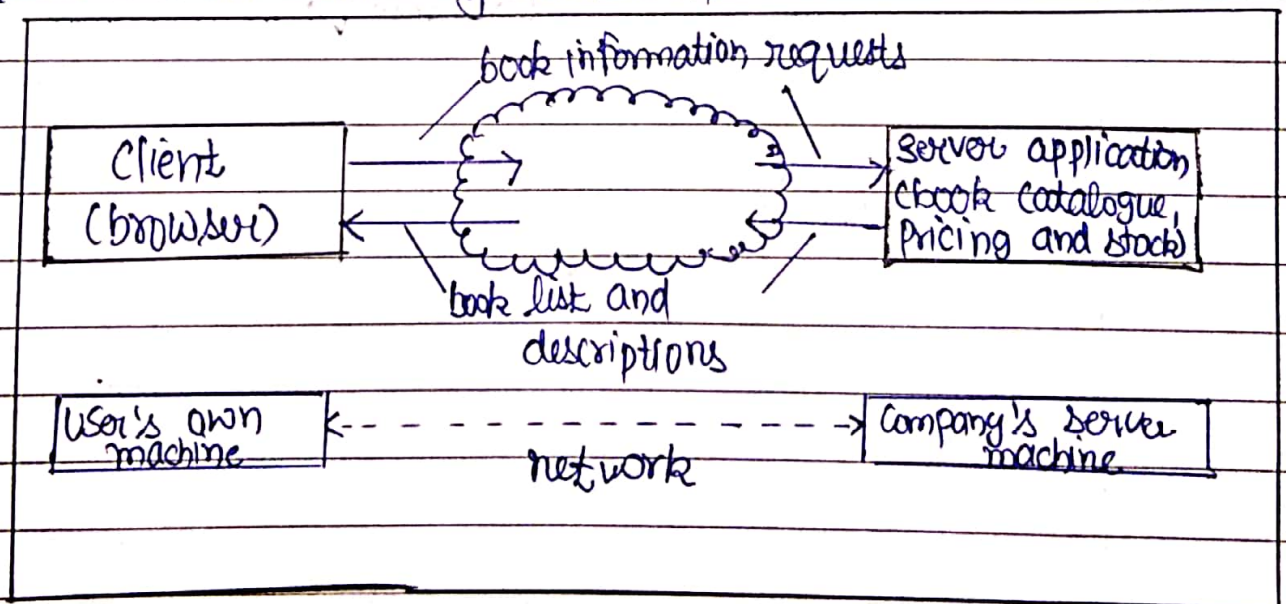 book information requests
Client
(browser)
server application
(book catalogue,
pricing and stock)
book list and
descriptions
user's own
machine
network
Company's server
machine